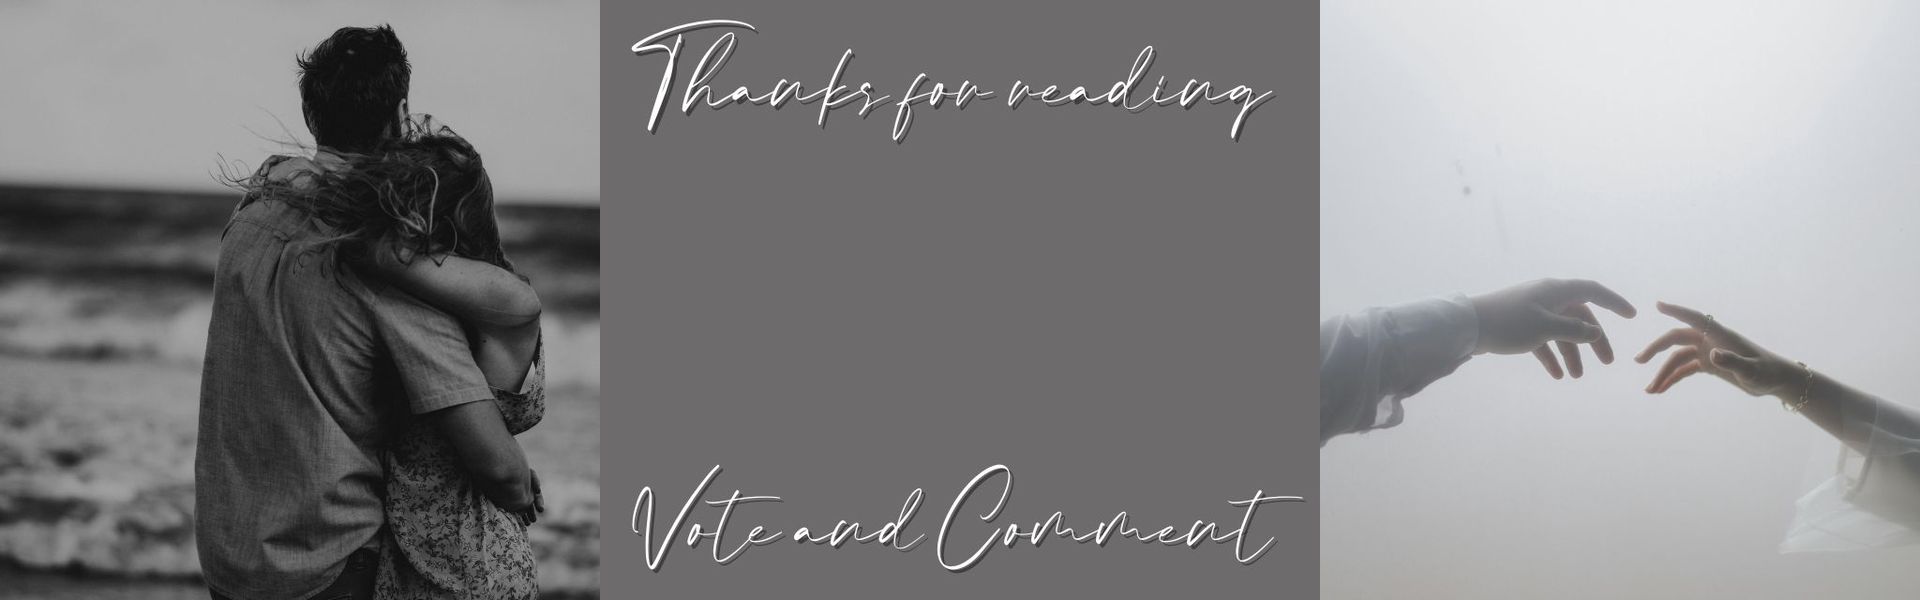 Thanks for reading
Vote and Comment